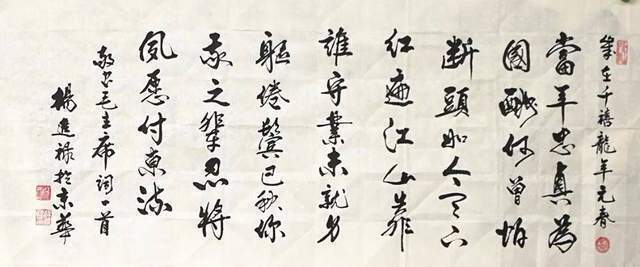 歲在千禧龍年元春
當年忠貞為
國酬何曾怕
断頭如今天下
红遍江山靠
誰守業未就身
躯倦鬓已秋你
我之輩忍將
夙愿付東流
敬书毛主席詞一首
楊進禄於京華